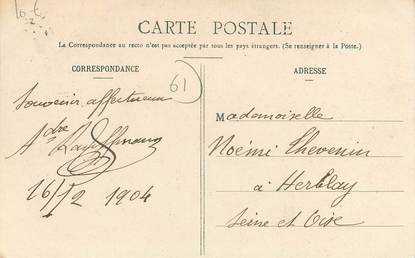 10 c
CARTE POSTALE
La Correspondance au recto n'est pas acceptée par tous les pays étrangers. (Se renseigner à la Poste.)
CORRESPONDANCE
61
Souvenir affectueux
Adre
16/12 1904
ADRESSE
Mademoiselle
Noémi Thevenin
à Herblay
Seine et Oise